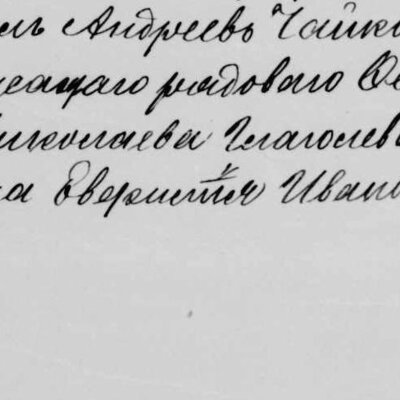 ль Андреевъ Чайко
щаго рядового О
николаева Глаголев
на Еверистъ Иван